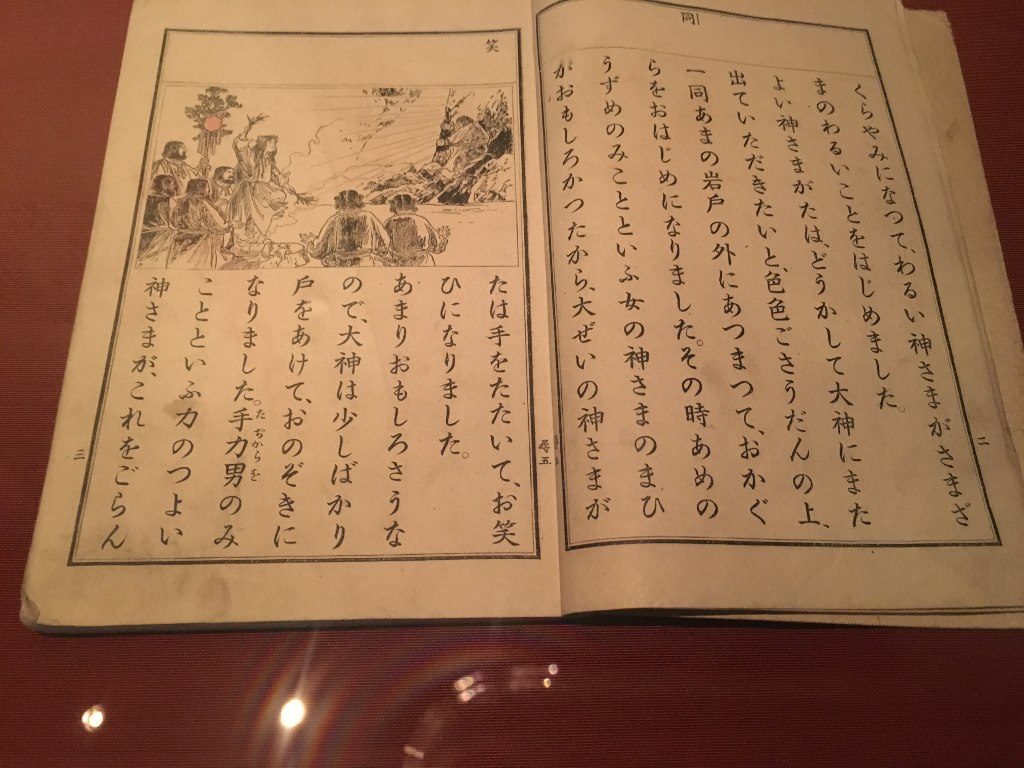 同
くらやみになつて、わるい神さまがさまざ
まのわるいことをはじめました。
よい神さまがたは、どうかして大神にまた
出ていただきたいと、色色ごさうだんの上、
一同あまの岩戸の外にあつまつて、おかぐ
らをおはじめになりました。その時あめの
うずめのみことといふ女の神さまのまひ
がおもしろかつたから、大ぜいの神さまが
二
尋五
笑
たは手をたたいて、お笑
ひになりました。
あまりおもしろさうな
ので、大神は少しばかり
戸をあけて、おのぞきに
なりました。手力男のみ
たぢからを
ことといふ力のつよい
神さまが、これをごらん
三